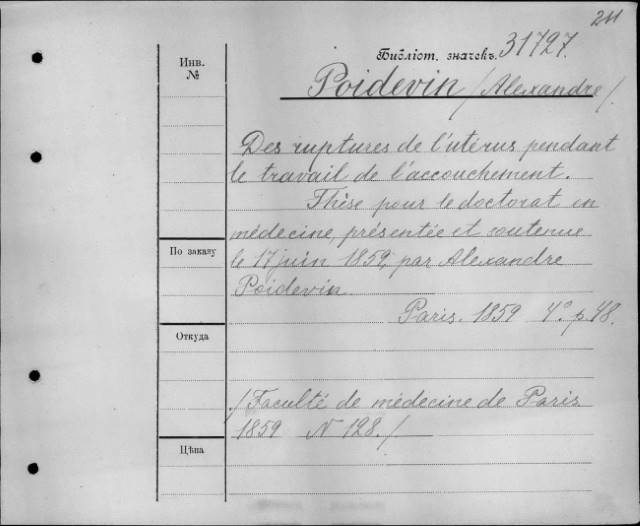 241
Библіот. значекъ. 31727.
Инв.
№
Poidevin /Alexandre/.
Des ruptures de l'utérus pendant
le travail de l'accouchement.
Thèse pour le doctorat en
médecine, présentée et soutenue
По заказу
le 17 juin 1859, par Alexandre
Poidevin
Paris. 1859 4° p 48.
Откуда
/Faculté de médecine de Paris
1859 N 128./
Цѣна